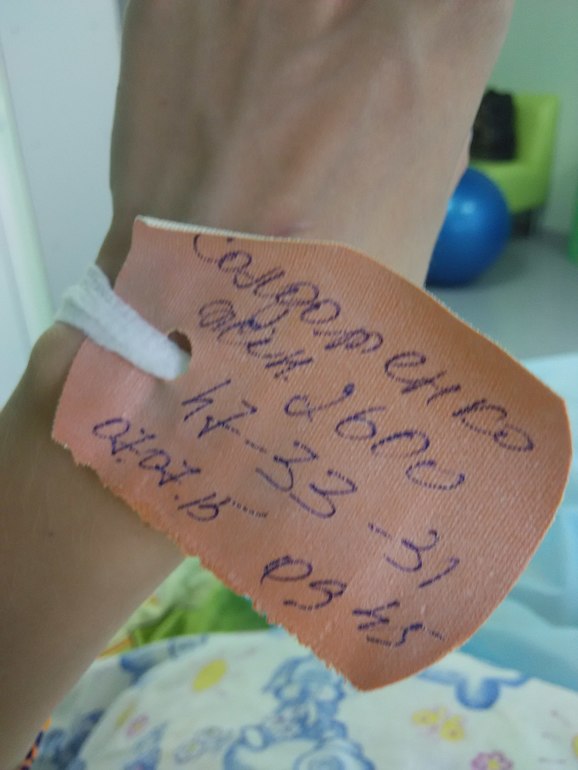 Солдатенко
жен. 2600
47-33-31
07.07.15 09 45